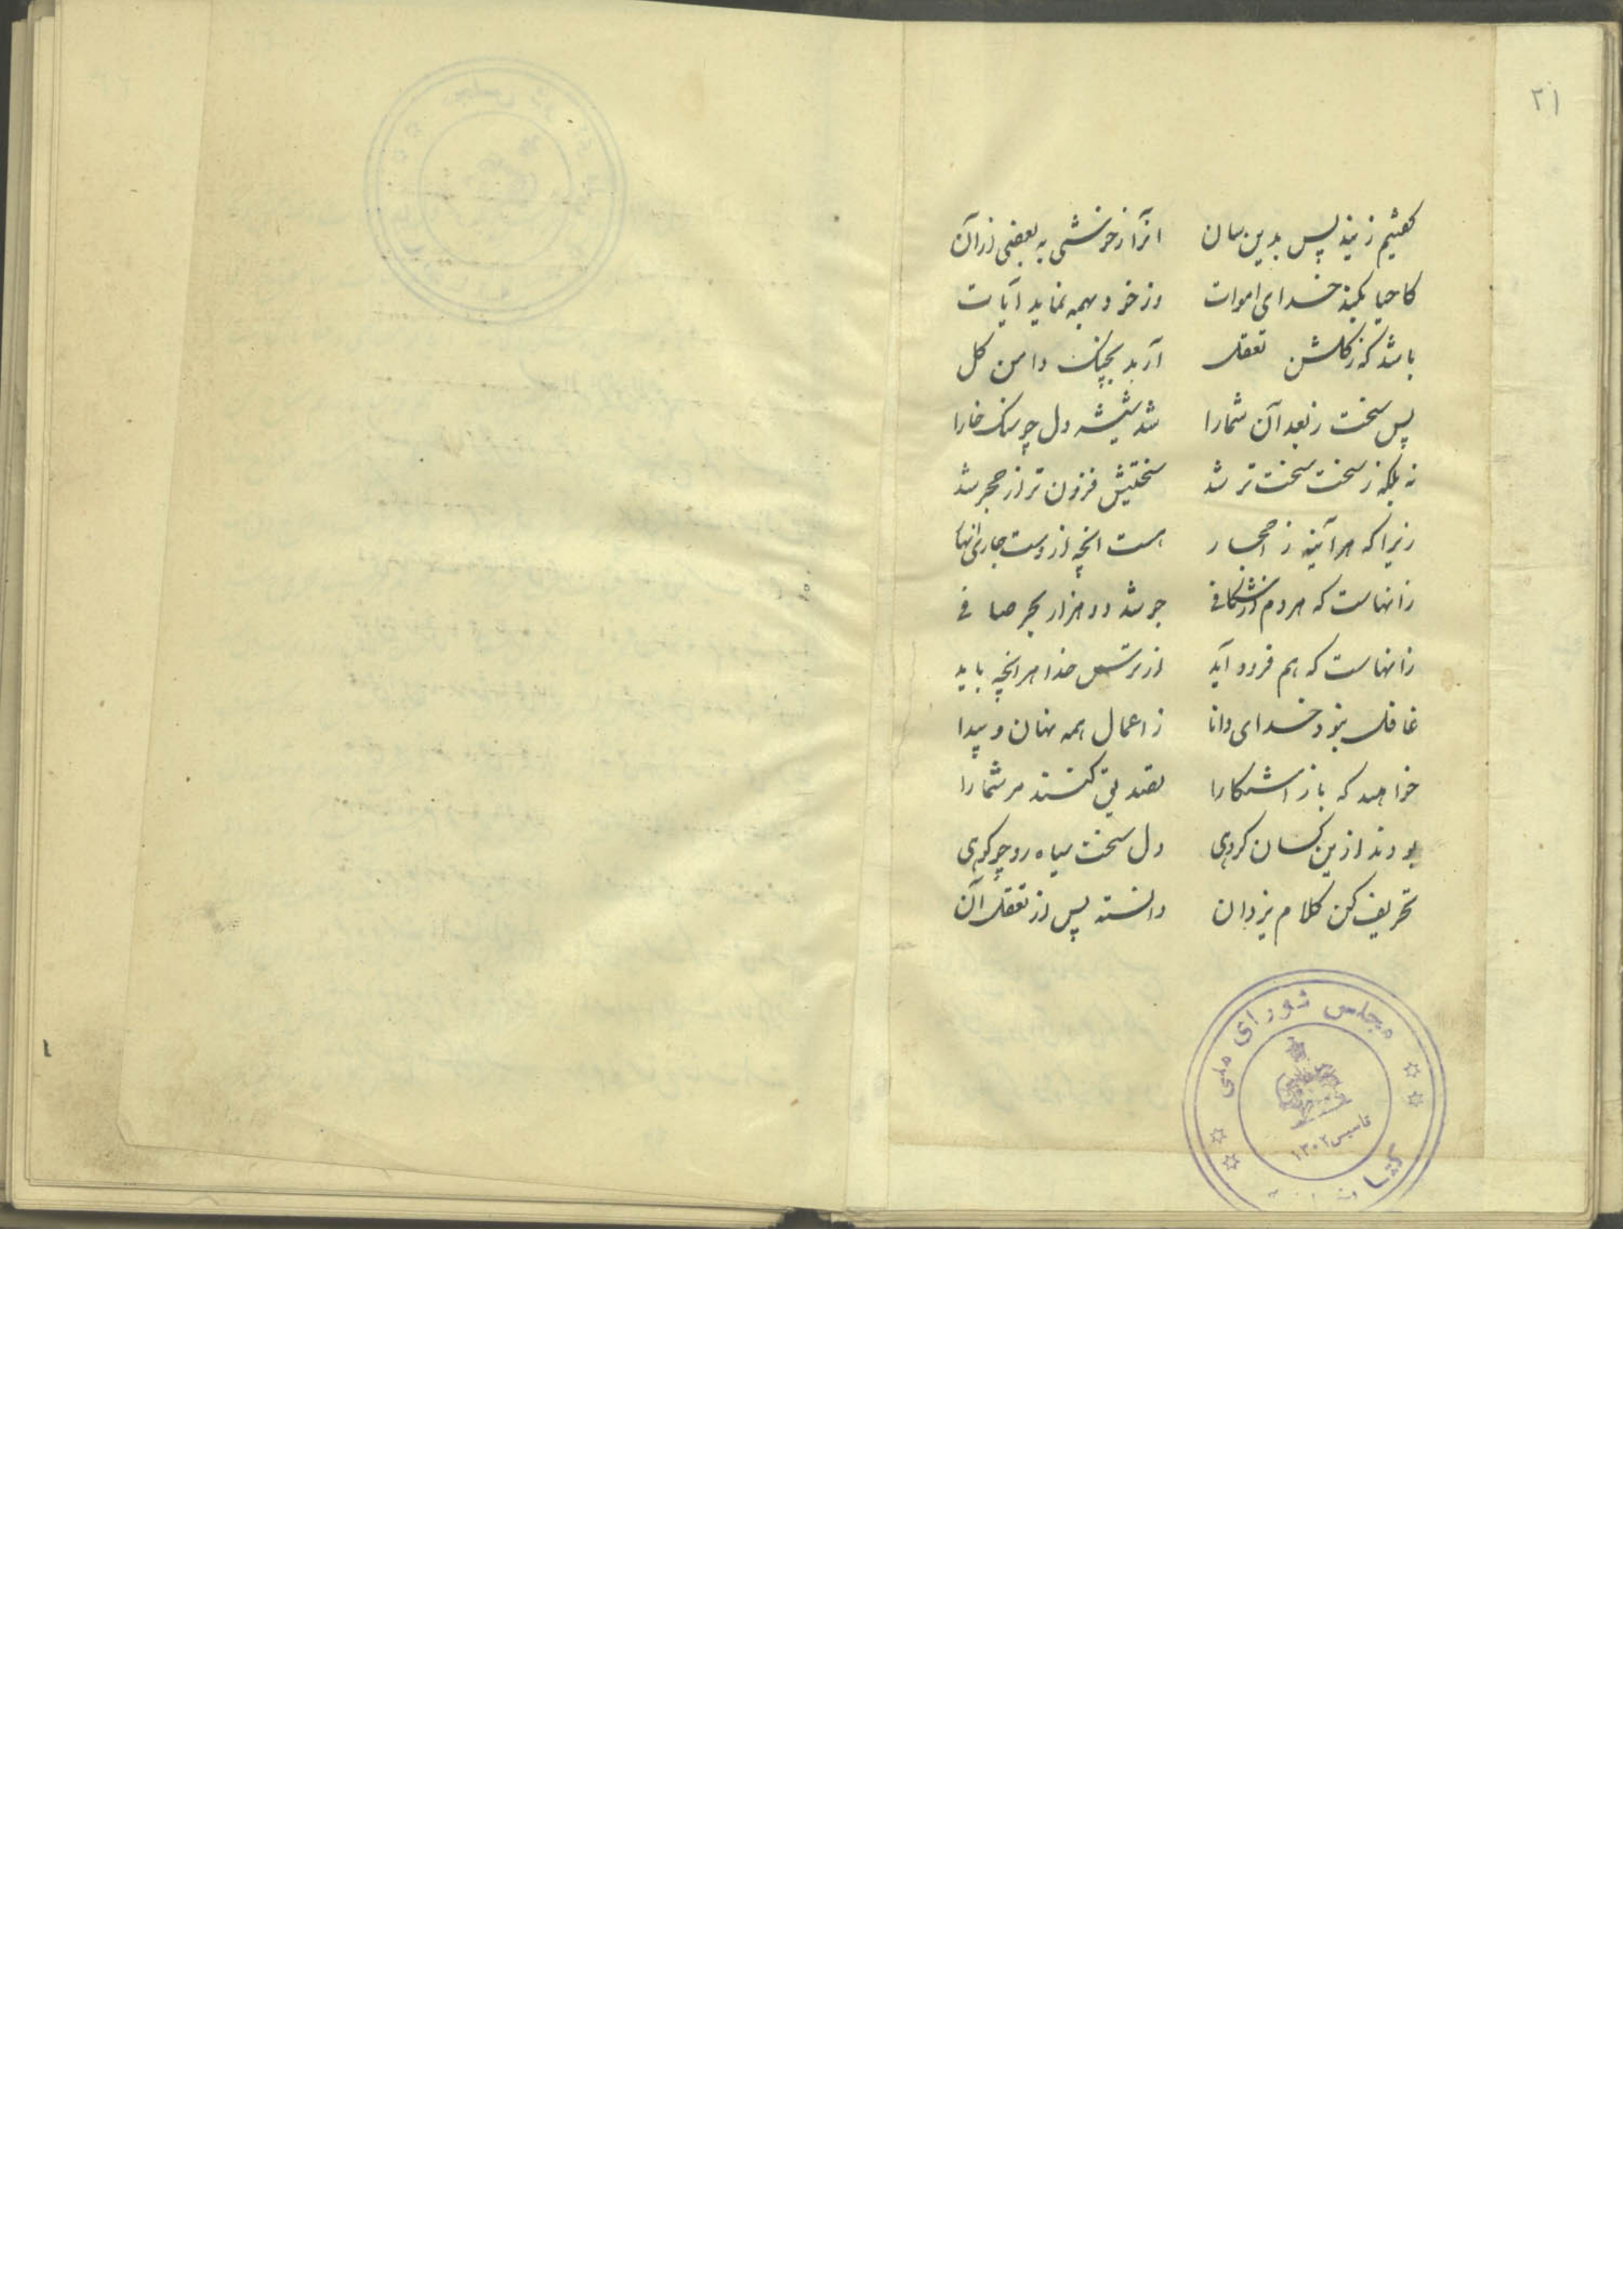 ۲۱
گفتیم زنید پس بدین سان انرا ز خوشی به بعضی از آن
کاحیا بکند خدای اموات وز خود همه نماید آیات
باشد که ز گلشن تعقل آرید بچنگ دامن گل
پس سخت ز بعد آن شما را شد شیشه دل چو سنگ خارا
نه بلکه ز سخت سخت تر شد سختیش فزون تر از حجر شد
زیرا که هر آینه ز احجار هست انچه از وست جاری انهار
زانهاست که هر دم از شکافی جوشد دو هزار بحر صافی
زانهاست که هم فرود آید از ترس خدا هر انچه باید
غافل نبود خدای دانا ز اعمال همه نهان و پیدا
خواهید که باز اشکارا تصدیق کنند مر شما را
بودند ازین کسان گروهی دل سخت سیاه رو چو کوهی
تحریف کن کلام یزدان دانسته پس از تعقل آن
مجلس شورای ملی
تاسیس ۱۳۰۲